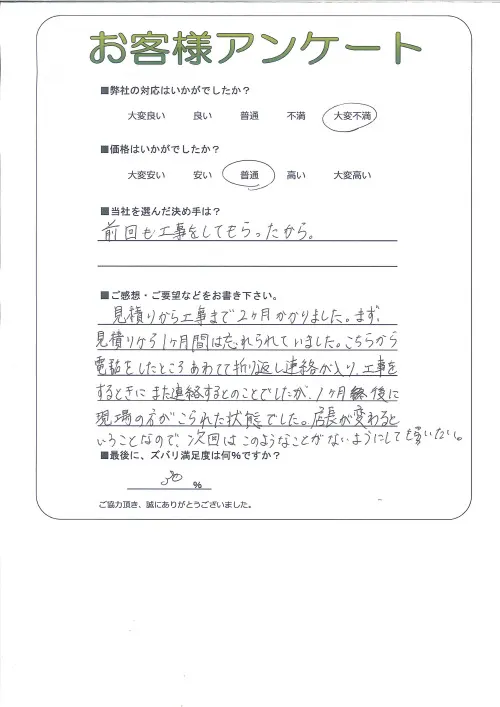 お客様アンケート
■弊社の対応はいかがでしたか?
大変良い 良い 普通 不満 大変不満
■価格はいかがでしたか?
大変安い 安い 普通 高い 大変高い
■当社を選んだ決め手は?
前回も工事をしてもらったから。
■ご感想・ご要望などをお書き下さい。
見積りから工事まで2ヶ月かかりました。まず、
見積りから1ヶ月間は忘れられていました。こちらから
電話をしたところあわてて折り返し連絡が入り、工事を
するときにまた連絡するとのことでしたが、1ヶ月後に
現場の方がこられた状態でした。店長が変わると
いうことなので、次回はこのようなことがないようにしてもらいたい。
■最後に、ズバリ満足度は何%ですか?
30 %
ご協力頂き、誠にありがとうございました。